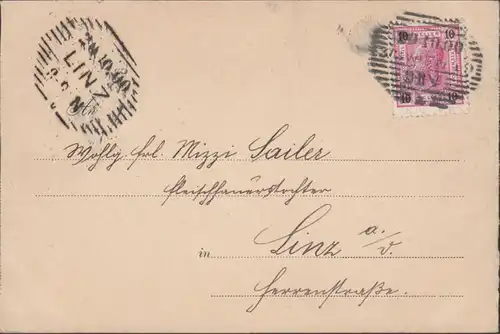 10 10
LINZ
10.00
Wohlg. frl. Mizzi Sailer
Fleischhauerstochter
in Linz a./D.
Herrenstraße.
10 10